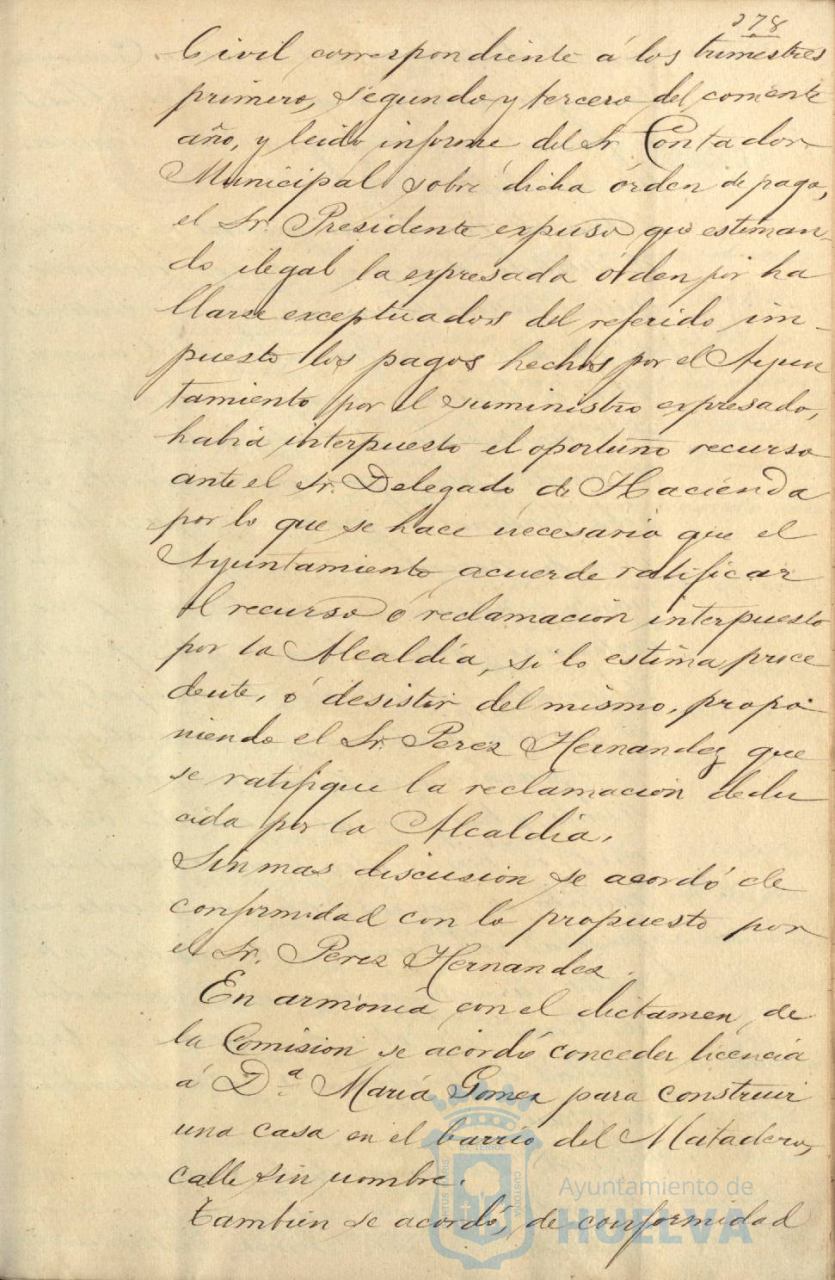 278
Civil correspondiente á los trimestres
primero, segundo y tercero del corriente
año, y leido informe del Sr Contador
Municipal sobre dicha órden de pago,
el Sr. Presidente expuso que estiman-
do ilegal la expresada órden por ha
llarse exceptuados del referido im-
puesto los pagos hechos por el Ayun
tamiento por el suministro expresado,
habia interpuesto el oportuno recurso
ante el Sr. Delegado de Hacienda
por lo que se hace necesario que el
Ayuntamiento acuerde ratificar
el recurso ó reclamación interpuesto
por la Alcaldía, si lo estima proce
dente, ó desistir del mismo, propo
niendo el Sr. Perez Hernandez que
se ratifique la reclamación dedu
cida por la Alcaldia.
Sin mas discusion se acordó de
conformidad con lo propuesto por
el Sr. Perez Hernandez.
En armonia con el dictamen de
la Comision se acordó conceder licencia
á D.ª Maria Gomez para construir
una casa en el barrio del Matadero,
calle sin nombre.
Tambien se acordó, de conformidad
Ayuntamiento de
HUELVA